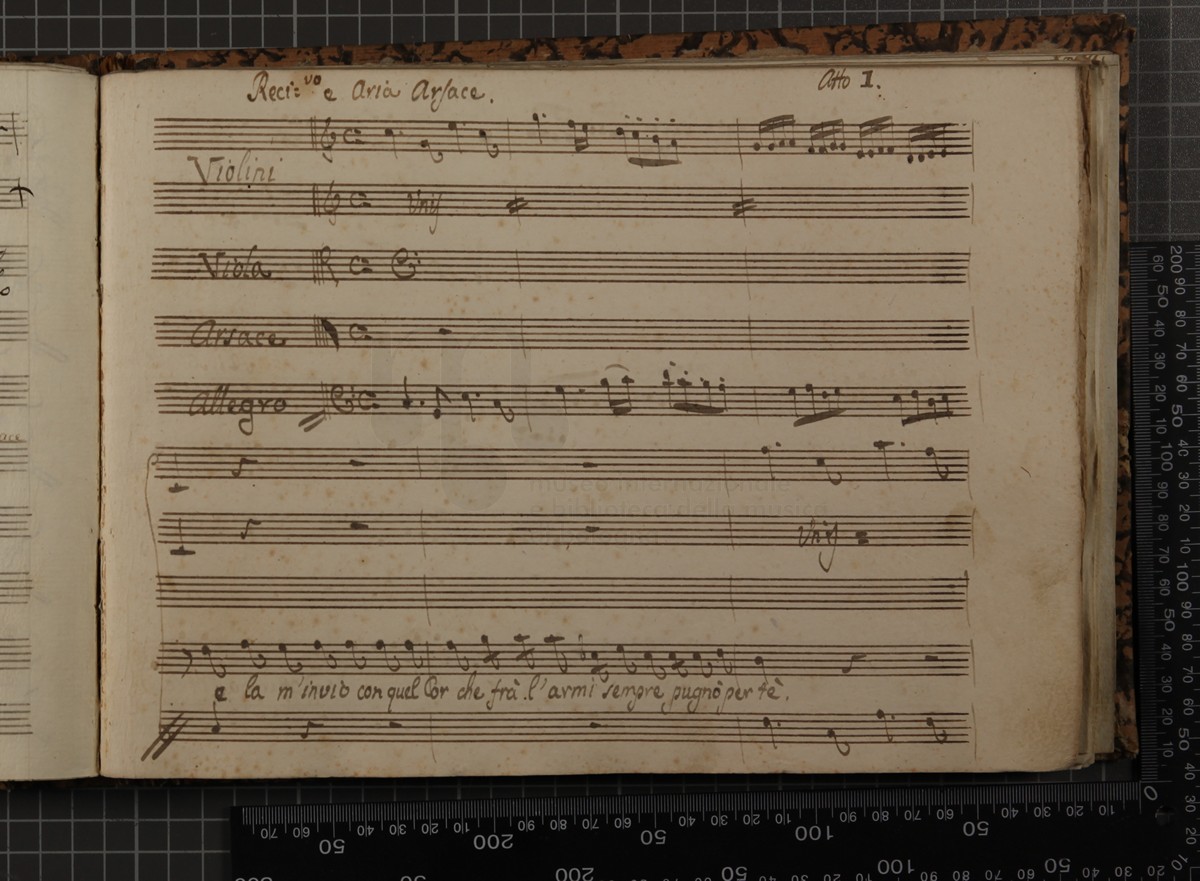 Reci:vo e Aria Arsace.
Atto I.
Violini
Unis
Viola
Arsace
Allegro
museo internazionale
e biblioteca della musica
Unis
e la m'inviò con quel Cor che frà l'armi sempre pugnò per tè.